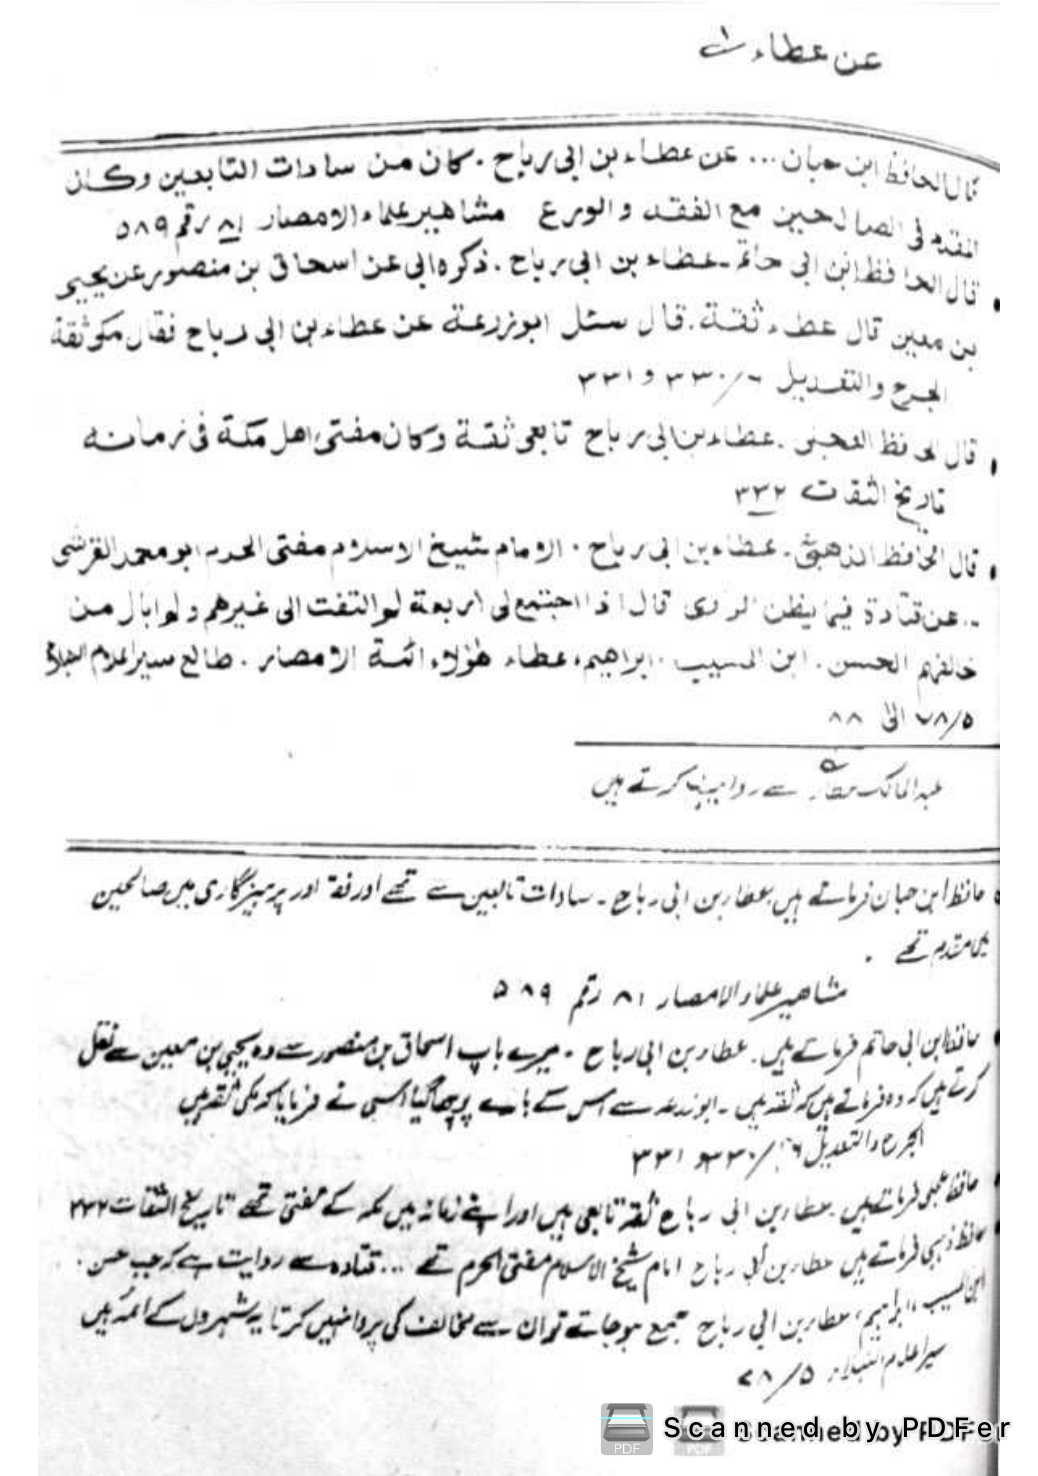 عن عطاء
قال الحافظ ابن حبان ... عن عطاء بن ابی رباح . کان من سادات التابعین وکان
المقدم فی الصالحین مع الفقه والورع مشاهیر علماء الامصار ۸۱ رقم ۵۸۹
• قال الحافظ ابن ابی حاتم ۔ عطاء بن ابی رباح . ذکره ابی عن اسحاق بن منصور عن یحیی
بن معین قال عطاء ثقة . قال سئل ابو زرعة عن عطاء بن ابی رباح فقال مکی ثقة
الجرح والتعدیل ۶/۳۳۰ و ۳۳۱
• قال الحافظ العجلی . عطاء بن ابی رباح تابعی ثقة وکان مفتی اهل مکة فی زمانه
تاریخ الثقات ۳۳۲
• قال الحافظ الذهبی . عطاء بن ابی رباح . الامام شیخ الاسلام مفتی الحرم ابو محمد القرشی
... عن قتادة فیما یظن الراوی قال اذا اجتمع لی اربعة لم التفت الی غیرهم ولم ابال من
خالفهم الحسن . ابن المسیب . ابراهیم ، عطاء هؤلاء ائمة الامصار . طالع سیر اعلام النبلاء
۷۸/۵ الی ۸۸
عبدالمالک عطاء سے روایت کرتے ہیں
• حافظ ابن حبان فرماتے ہیں عطاء بن ابی رباح ۔ سادات تابعین سے تھے اور فقہ اور پرہیزگاری میں صالحین
میں مقدم تھے ۔
مشاہیر علماء الامصار ۸۱ رقم ۵۸۹
• حافظ ابن ابی حاتم فرماتے ہیں ۔ عطاء بن ابی رباح ۔ میرے باپ اسحاق بن منصور سے وہ یحیی بن معین سے نقل
کرتے ہیں کہ وہ فرماتے ہیں کہ ثقہ ہیں ۔ ابوزرعہ سے اس کے بارے پوچھا گیا نے فرمایا کہ مکی ثقہ ہیں
الجرح والتعدیل ۶/۳۳۰ و ۳۳۱
• حافظ عجلی فرماتے ہیں ۔ عطاء بن ابی رباح ثقہ تابعی ہیں اور اپنے زمانہ میں مکہ کے مفتی تھے تاریخ الثقات ۳۳۲
• حافظ ذہبی فرماتے ہیں عطاء بن ابی رباح امام شیخ الاسلام مفتی الحرم تھے ... قتادہ سے روایت ہے کہ جب حسن ،
ابن المسیب ، ابراہیم ، عطاء بن ابی رباح جمع ہو جاتے تو ان سے مخالف کی پروا نہیں کرتا یہ شہروں کے ائمہ ہیں
سیر اعلام النبلاء ۷۸/۵
Scanned by PDFer